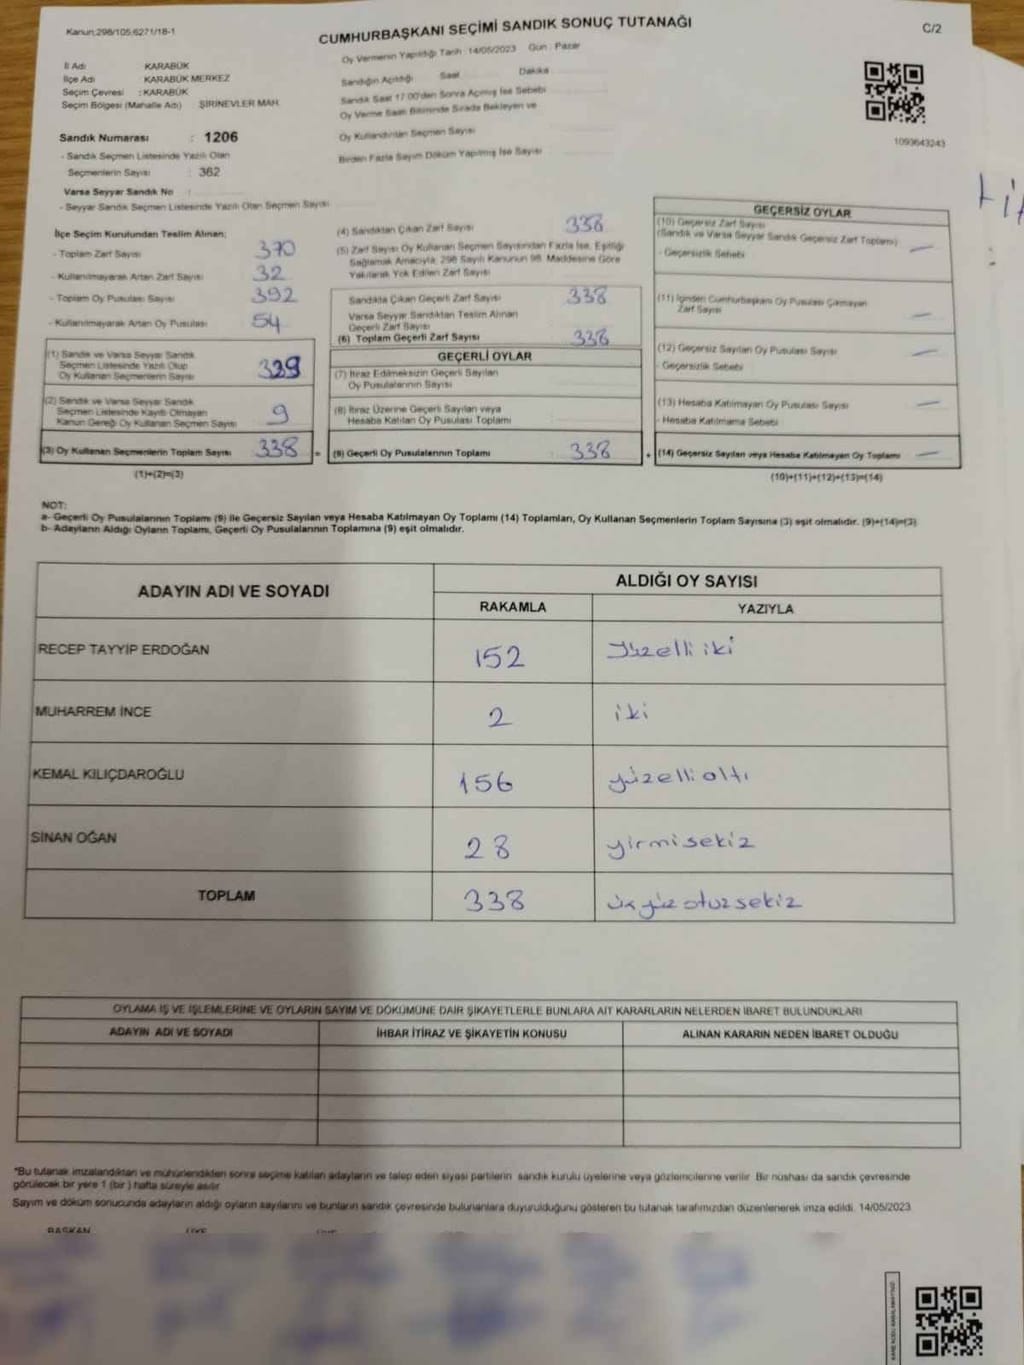 Kanun:298/105,6271/18-1
CUMHURBAŞKANI SEÇİMİ SANDIK SONUÇ TUTANAĞI
C/2
Oy Vermenin Yapıldığı Tarih : 14/05/2023 Gün : Pazar
İl Adı KARABÜK
İlçe Adı KARABÜK MERKEZ
Seçim Çevresi : KARABÜK
Seçim Bölgesi (Mahalle Adı) ŞİRİNEVLER MAH.
Sandığın Açıldığı Saat Dakika
Sandık Saat 17:00'den Sonra Açılmış İse Sebebi
Oy Verme Saati Bitiminde Sırada Bekleyen ve
Oy Kullandırılan Seçmen Sayısı
Birden Fazla Sayım Döküm Yapılmış İse Sayısı
1093643243
Sandık Numarası : 1206
- Sandık Seçmen Listesinde Yazılı Olan
Seçmenlerin Sayısı : 362
Varsa Seyyar Sandık No :
- Seyyar Sandık Seçmen Listesinde Yazılı Olan Seçmen Sayısı
İlçe Seçim Kurulundan Teslim Alınan;
- Toplam Zarf Sayısı 370
- Kullanılmayarak Artan Zarf Sayısı 32
- Toplam Oy Pusulası Sayısı 392
- Kullanılmayarak Artan Oy Pusulası 54
(1) Sandık ve Varsa Seyyar Sandık
Seçmen Listesinde Yazılı Olup
Oy Kullanan Seçmenlerin Sayısı 329
(2) Sandık ve Varsa Seyyar Sandık
Seçmen Listesinde Kayıtlı Olmayan
Kanun Gereği Oy Kullanan Seçmen Sayısı 9
(3) Oy Kullanan Seçmenlerin Toplam Sayısı 338 =
(1)+(2)=(3)
(4) Sandıktan Çıkan Zarf Sayısı 338
(5) Zarf Sayısı Oy Kullanan Seçmen Sayısından Fazla İse, Eşitliği
Sağlamak Amacıyla, 298 Sayılı Kanunun 98. Maddesine Göre
Yakılarak Yok Edilen Zarf Sayısı
Sandıkta Çıkan Geçerli Zarf Sayısı 338
Varsa Seyyar Sandıktan Teslim Alınan
Geçerli Zarf Sayısı
(6) Toplam Geçerli Zarf Sayısı 338
GEÇERLİ OYLAR
(7) İtiraz Edilmeksizin Geçerli Sayılan
Oy Pusulalarının Sayısı
(8) İtiraz Üzerine Geçerli Sayılan veya
Hesaba Katılan Oy Pusulası Toplamı
(9) Geçerli Oy Pusulalarının Toplamı : 338 +
GEÇERSİZ OYLAR
(10) Geçersiz Zarf Sayısı
(Sandık ve Varsa Seyyar Sandık Geçersiz Zarf Toplamı) —
- Geçersizlik Sebebi
(11) İçinden Cumhurbaşkanı Oy Pusulası Çıkmayan
Zarf Sayısı —
(12) Geçersiz Sayılan Oy Pusulası Sayısı —
- Geçersizlik Sebebi
(13) Hesaba Katılmayan Oy Pusulası Sayısı —
- Hesaba Katılmama Sebebi
(14) Geçersiz Sayılan veya Hesaba Katılmayan Oy Toplamı —
(10)+(11)+(12)+(13)=(14)
NOT:
a- Geçerli Oy Pusulalarının Toplamı (9) ile Geçersiz Sayılan veya Hesaba Katılmayan Oy Toplamı (14) Toplamları, Oy Kullanan Seçmenlerin Toplam Sayısına (3) eşit olmalıdır. (9)+(14)=(3)
b- Adayların Aldığı Oyların Toplamı, Geçerli Oy Pusulalarının Toplamına (9) eşit olmalıdır.
ADAYIN ADI VE SOYADI
ALDIĞI OY SAYISI
RAKAMLA YAZIYLA
RECEP TAYYİP ERDOĞAN 152 yüzelli iki
MUHARREM İNCE 2 iki
KEMAL KILIÇDAROĞLU 156 yüzelli altı
SİNAN OĞAN 28 yirmisekiz
TOPLAM 338 üçyüz otuzsekiz
OYLAMA İŞ VE İŞLEMLERİNE VE OYLARIN SAYIM VE DÖKÜMÜNE DAİR ŞİKAYETLERLE BUNLARA AİT KARARLARIN NELERDEN İBARET BULUNDUKLARI
ADAYIN ADI VE SOYADI İHBAR İTİRAZ VE ŞİKAYETİN KONUSU ALINAN KARARIN NEDEN İBARET OLDUĞU
*Bu tutanak imzalandıktan ve mühürlendikten sonra seçime katılan adayların ve talep eden siyasi partilerin sandık kurulu üyelerine veya gözlemcilerine verilir. Bir nüshası da sandık çevresinde
görülecek bir yere 1 (bir) hafta süreyle asılır.
Sayım ve döküm sonucunda adayların aldığı oyların sayılarını ve bunların sandık çevresinde bulunanlara duyurulduğunu gösteren bu tutanak tarafımızdan düzenlenerek imza edildi. 14/05/2023
BAŞKAN ÜYE ÜYE